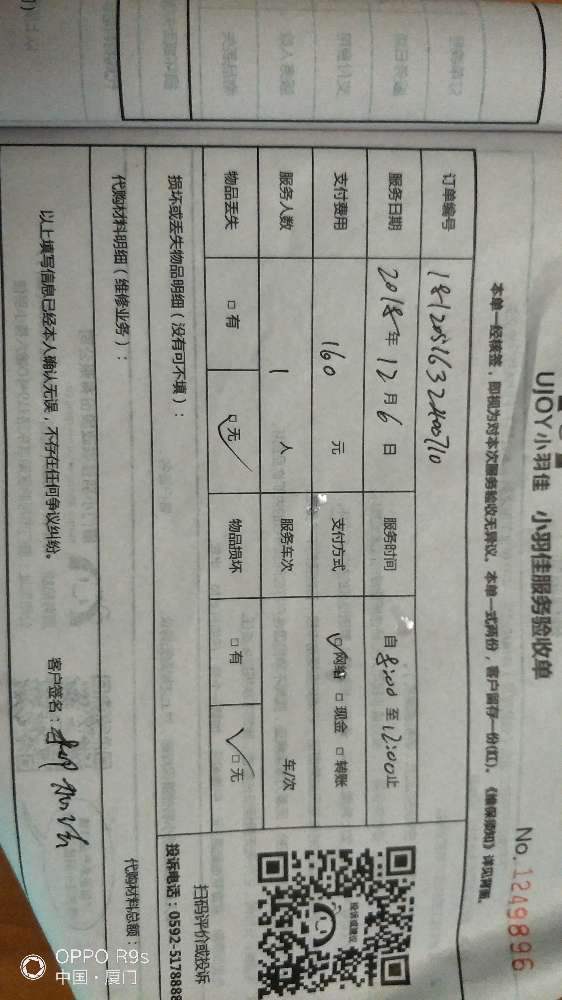 UIOY小羽佳 小羽佳服务验收单
No.1249896
本单一经核签，即视为对本次服务验收无异议。本单一式两份，客户留存一份(红)。《维保须知》详见背面。
订单编号
服务日期 2018年12月6日 服务时间 自8:00至12:00止
支付费用 160 元 支付方式 □网络 □现金 □转账
服务人数 1 人 服务车次 车/次
物品丢失 □有 □无 物品损坏 □有 □无
损坏或丢失物品明细（没有可不填）：
投诉或建议
扫码评价或投诉
投诉电话：0592-5178888
代购材料明细（维修业务）：
代购材料总额：
以上填写信息已经本人确认无误，不存在任何争议纠纷。
客户签名：
OPPO R9s
中国·厦门